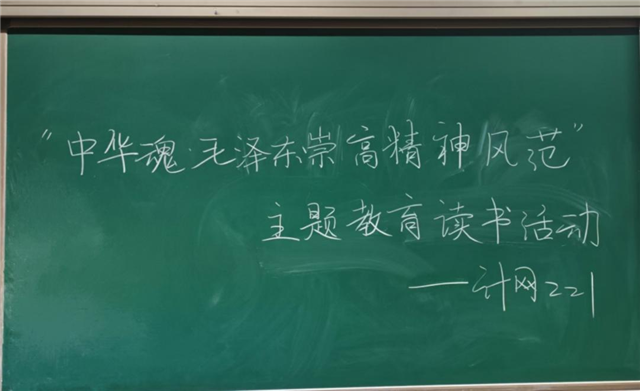 "中华魂·毛泽东崇高精神风范"
主题教育读书活动
——计网221